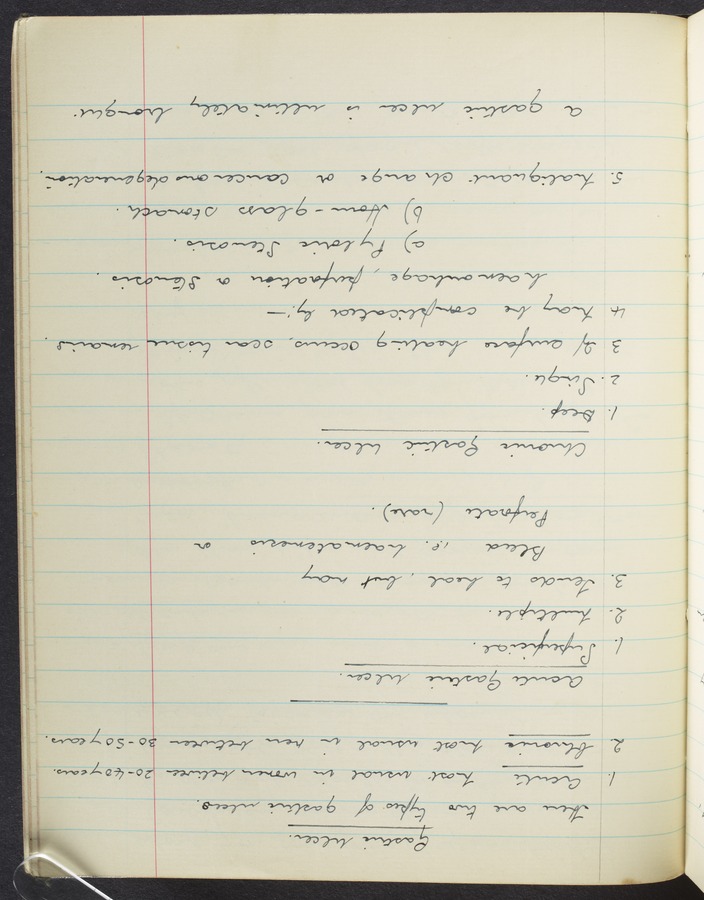 Gastric Ulcer.
There are two types of gastric ulcers.
1. Acute most usual in women between 20-40 years.
2. Chronic most usual in men between 30-50 years.
Acute Gastric Ulcer.
1. Superficial.
2. Multiple.
3. Tends to heal, but may
Bleed i.e. haematemesis or
Perforate (rare).
Chronic Gastric Ulcer.
1. Deep.
2. Single.
3 If surface healing occurs, scar tissue remains.
4 May be complicated by:—
haemorrhage, perforation or Stenosis.
a) Pyloric Stenosis.
b) Hour-glass stomach.
5. Malignant change or cancerous degeneration.
A gastric ulcer is ultimately benign.